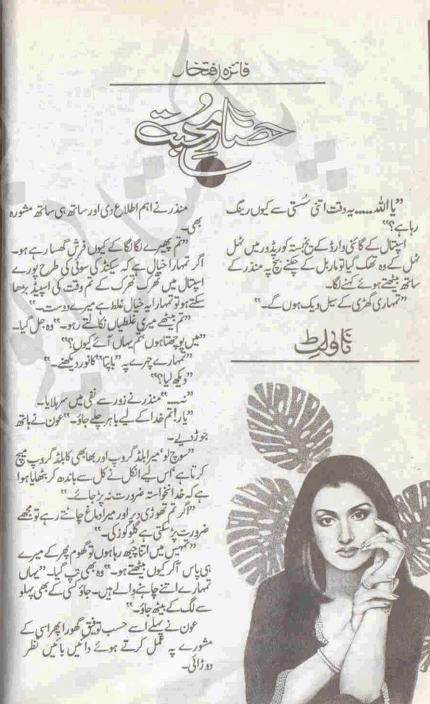 فائزہ افتخار
حصار محبت
”یا اللہ...... یہ وقت اتنی سستی سے کیوں رینگ
رہا ہے؟“
اسپتال کے گائنی وارڈ کے یخ بستہ کوریڈور میں ٹہل
ٹہل کے وہ تھک گیا تو ماربل کے چکنے بنچ پہ منذر کے
ساتھ بیٹھتے ہوئے کہنے لگا۔
”تمہاری گھڑی کے سیل ویک ہوں گے۔“
ناولٹ
منذر نے اہم اطلاع دی اور ساتھ ہی ساتھ مشورہ
بھی۔
”تم پھیرے لگا لگا کے کیوں فرش گھسا رہے ہو۔
اگر تمہارا خیال ہے کہ سیکنڈ کی سوئی کی طرح پورے
اسپتال میں تھرک تھرک کے تم وقت کی اسپیڈ بڑھا
سکتے ہو تو تمہارا یہ خیال غلط ہے میرے دوست۔“
”تم بیٹھے میری غلطیاں نکالتے رہو۔“ وہ جل گیا۔
”میں پوچھتا ہوں تم یہاں آئے کیوں؟“
”تمہارے چہرے پہ ”پاپتا“ کا نور دیکھنے۔“
”دیکھ لیا؟“
”نہ۔“ منذر نے زور سے نفی میں سر ہلایا۔
”یار! تم خدا کے لیے باہر چلے جاؤ۔“ عون نے ہاتھ
جوڑ دیے۔
”سوچ لو‘ میرا بلڈ گروپ اور بھابھی کا بلڈ گروپ میچ
کرتا ہے‘ اس لیے انکل نے کل سے باندھ کر بٹھایا ہوا
ہے کہ خدانخواستہ ضرورت نہ پڑ جائے۔“
”اگر تم تھوڑی دیر اور میرا دماغ چاٹتے رہے تو مجھے
ضرورت پڑ سکتی ہے گلوکوز کی۔“
”تمہیں میں اتنا چبھ رہا ہوں تو گھوم پھر کے میرے
ہی پاس آ کر کیوں بیٹھتے ہو۔“ وہ بھی تپ گیا۔ ”یہاں
تمہارے اتنے چاہنے والے ہیں۔ جاؤ کسی کے بھی پہلو
سے لگ کے بیٹھ جاؤ۔“
عون نے پہلے اسے حسب توفیق گھورا پھر اسی کے
مشورے پہ عمل کرتے ہوئے دائیں بائیں نظر
دوڑائی۔